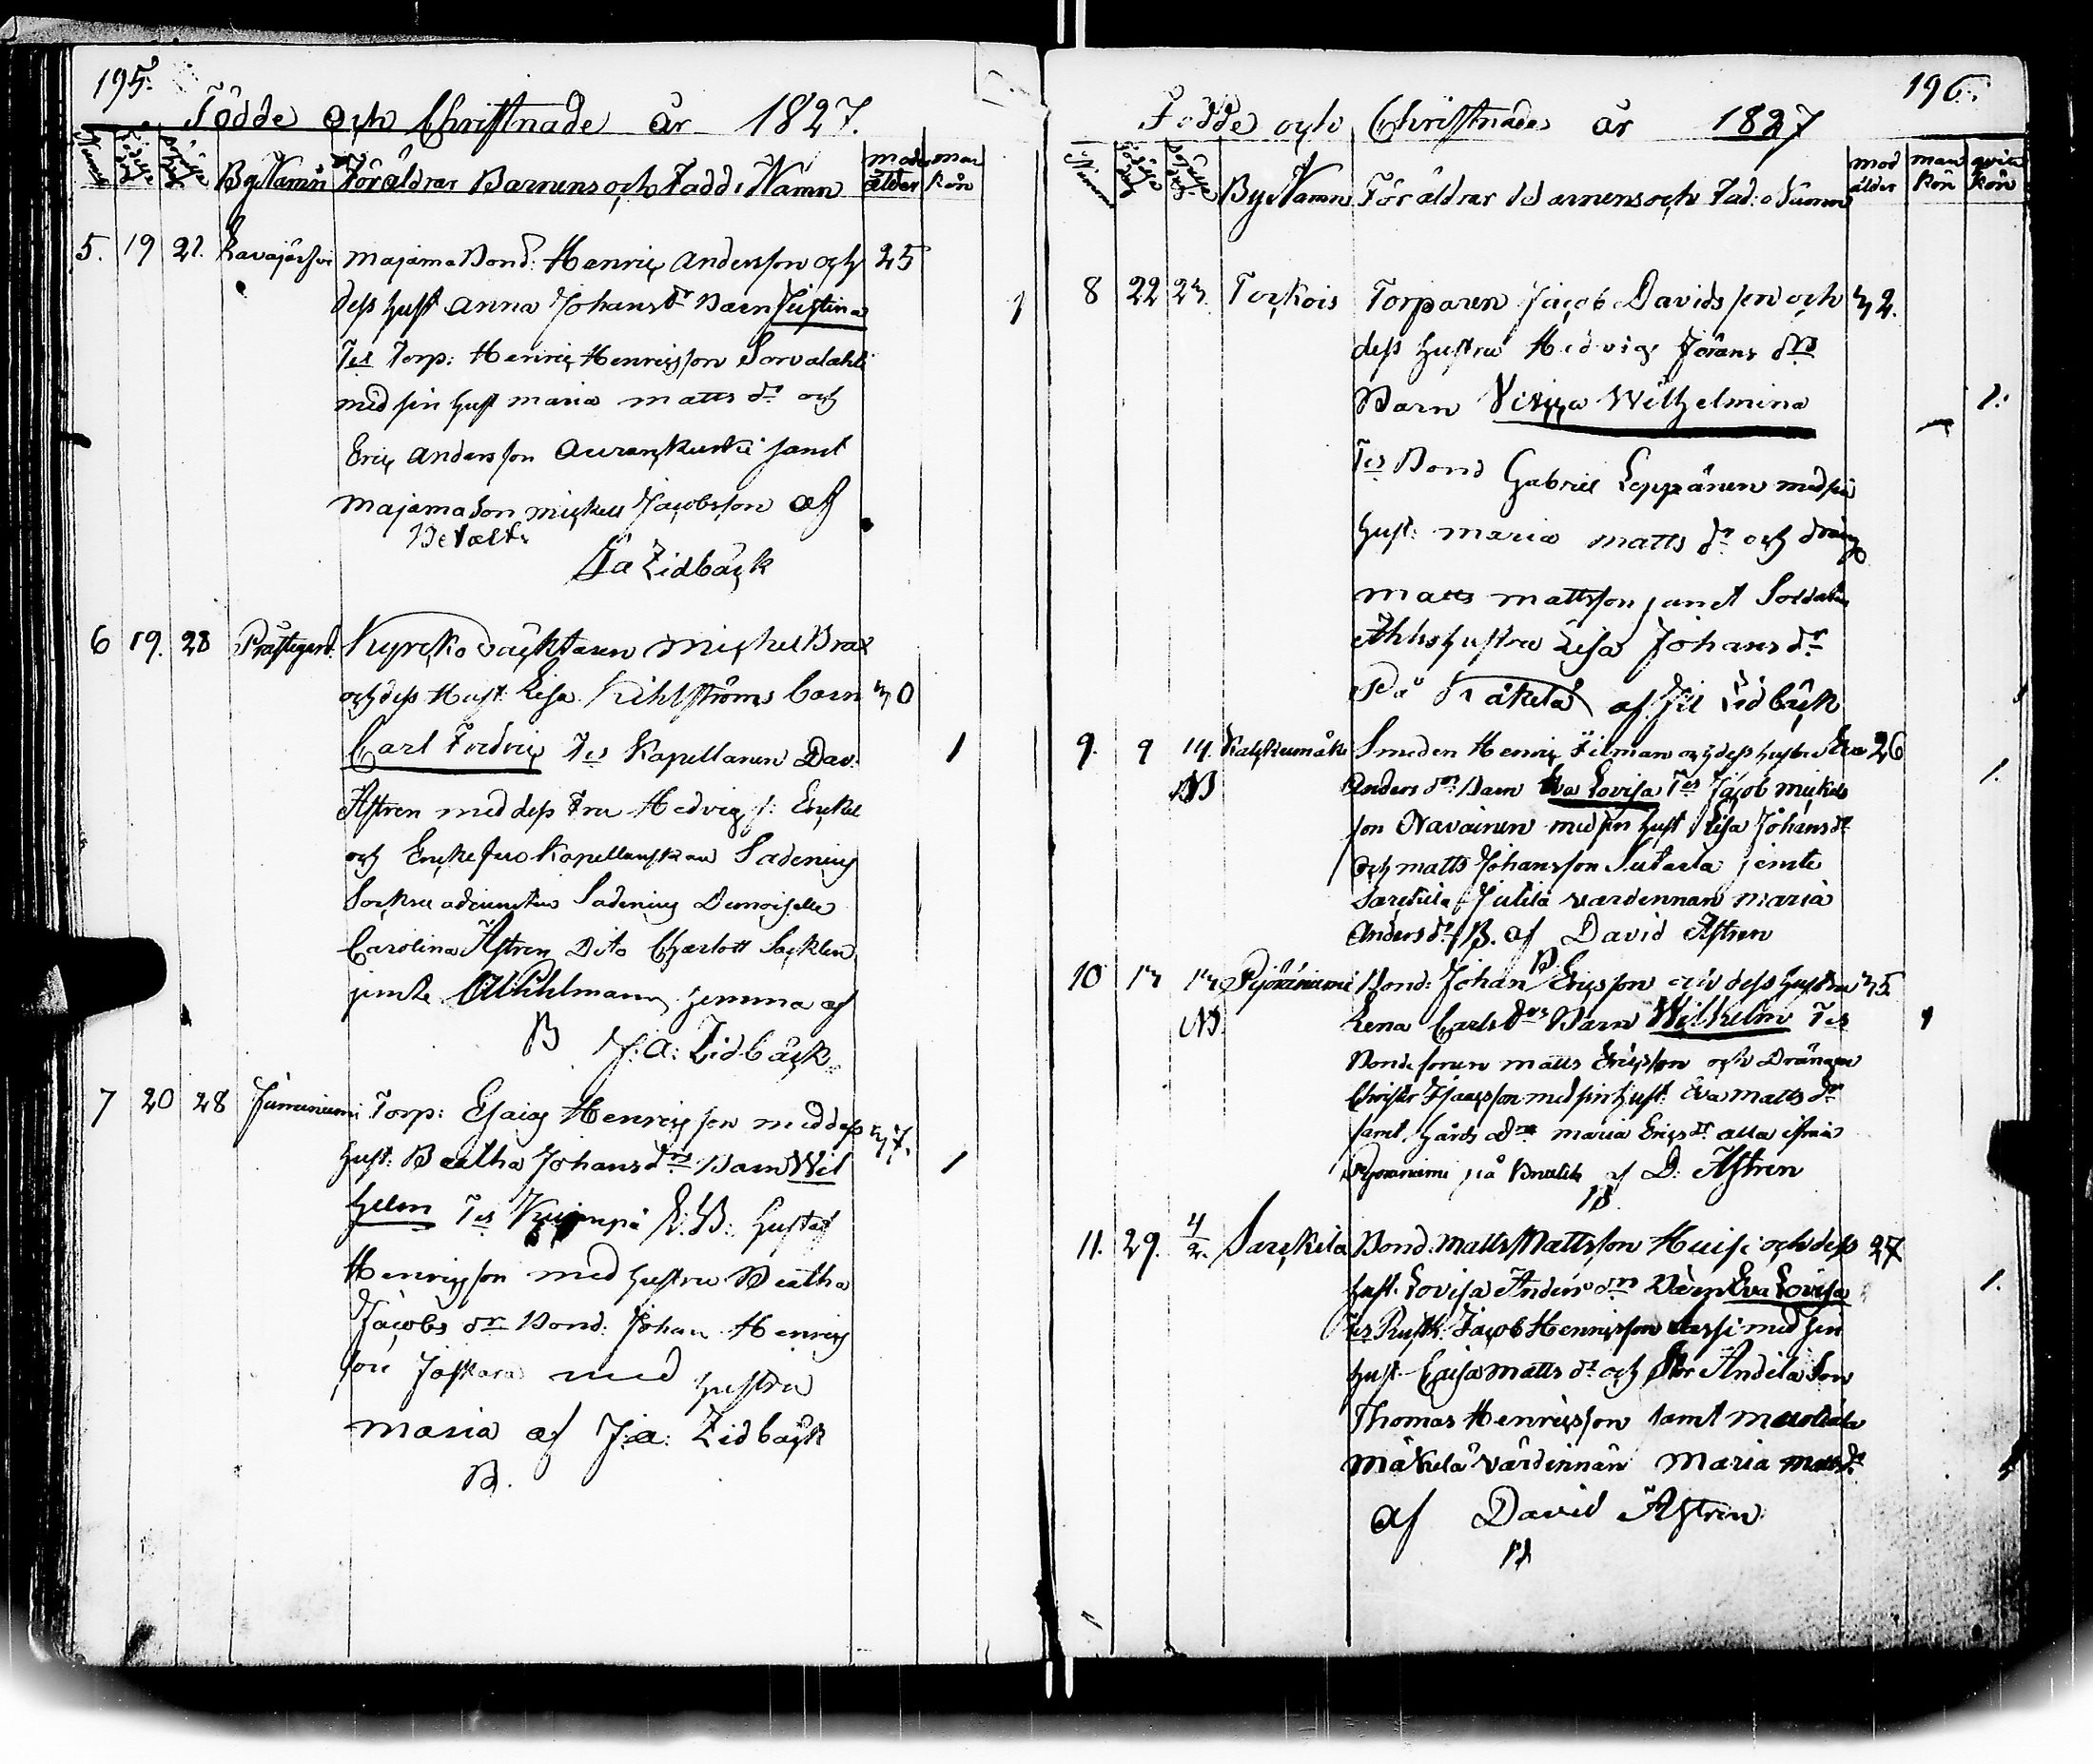 195.
Födde och Christnade år 1827.
By Namn Föräldrar Barnens och Fadd: Namn mod ålder man kön
5. 19 21. Kavajärfvi Majama Bond: Henric Andersson och 25
dess hust Anna Johans dr Barn Justina 1
Tes Torp: Henric Henricsson Sorvalahti
med sin hust Maria Matts dr och
Eric Andersson Aurankurki samt
Majama Son Mickell Jacobsson af
Betalt
J a Lidbäck
6 19. 28 Prästegård. Kyrcko väcktaren Michel Brax
och dess Hust: Lisa Kihlströms barn 30
Carl Fredric Tes Kapellanen Dav: 1
Astren med dess Fru Hedvig f: Enckel
och Enckefru Kapellanskan Sadenius
Sockne adjunctus Sadenius Demoiselle
Carolina Astren Dito Charlott Sacklen
jemte Wihlman hemma af
B J: a: Lidbäck
7 20 28 Juminiemi Torp: Esaias Henricsson med dess 37.
hust: Beatha Johans drs Barn Wil 1
helm Tes R: B: Gustaf
Henricsson med hustru Beatha
Jacobs dr Bond: Johan Henric
son Joskara med hustru
Maria af J: a: Lidbäck
B.
196.
Födde och Christnade år 1827
By Namn Föräldrar Barnens och Fad: Namn mod ålder man kön qvin kön
8 22 23. Torkois Torparen Jacob Davidsson och 32.
dess hustru Hedvig Jörans drs
Barn Vilhelmina 1.
Tes Bond Gabriel Leppänen med sin
hust: Maria Matts dr och dräng
Matts Mattsson samt Soldaten
hustru Lisa Johans dr
På Käkelä af J a Lidbäck
9. 9 14. Smeden Henric Filman och dess hustru Eva 26
NB Anders drs Barn Eva Lovisa Tes Jacob Mickels 1.
son Navainen med sin hust Lisa Johans dr
och Matts Johansson Sutarla jemte
Sareküla Jutila värdennan Maria
Anders dr B. af David Astren
10 13 13 Pyöräniemi Bond: Johan Ericsson och dess hustru 35.
NB. Lena Carls drs Barn Wilhelm Tes 1
Bonde sonen Matts Ericsson och Drängen
Christer Isaacsson med sin hust: Eva Matts dr
samt Maria Erics dr alla ifrån
Pyöräniemi på af D: Astren
B
11. 29. 4/2. Sarckila Bond. Matts Mattsson Huisi och dess 27
hust. Lovisa Anders drs Barn Eva Lovisa 1.
Tes Rusth: Jacob Henricsson Lassi med sin
hust. Caisa Matts dr och Stor Andila Son
Thomas Henricsson samt
Mäkelä värdinnan Maria Matts dr
af David Astren
B